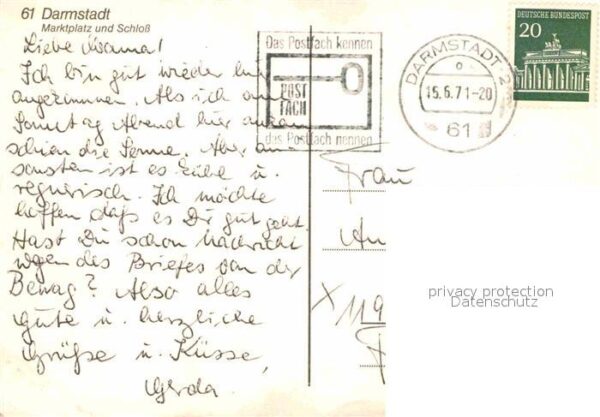 61 Darmstadt
Marktplatz und Schloß
Liebe Mama!
Ich bin gut wieder hier
angekommen. Als ich am
Sonntag Abend hier ankam
schien die Sonne. Aber an-
sonsten ist es kühl u.
regnerisch. Ich möchte
hoffen daß es Dir gut geht.
Hast Du schon Nachricht
wegen des Briefes von der
Bewag? Also alles
Gute u. herzliche
Grüße u. Küsse,
Gerda.
Das Postfach kennen
POST
FACH
das Postfach nennen
DARMSTADT 2
15.6.71-20
61
DEUTSCHE BUNDESPOST
20
Frau
X 119
privacy protection
Datenschutz